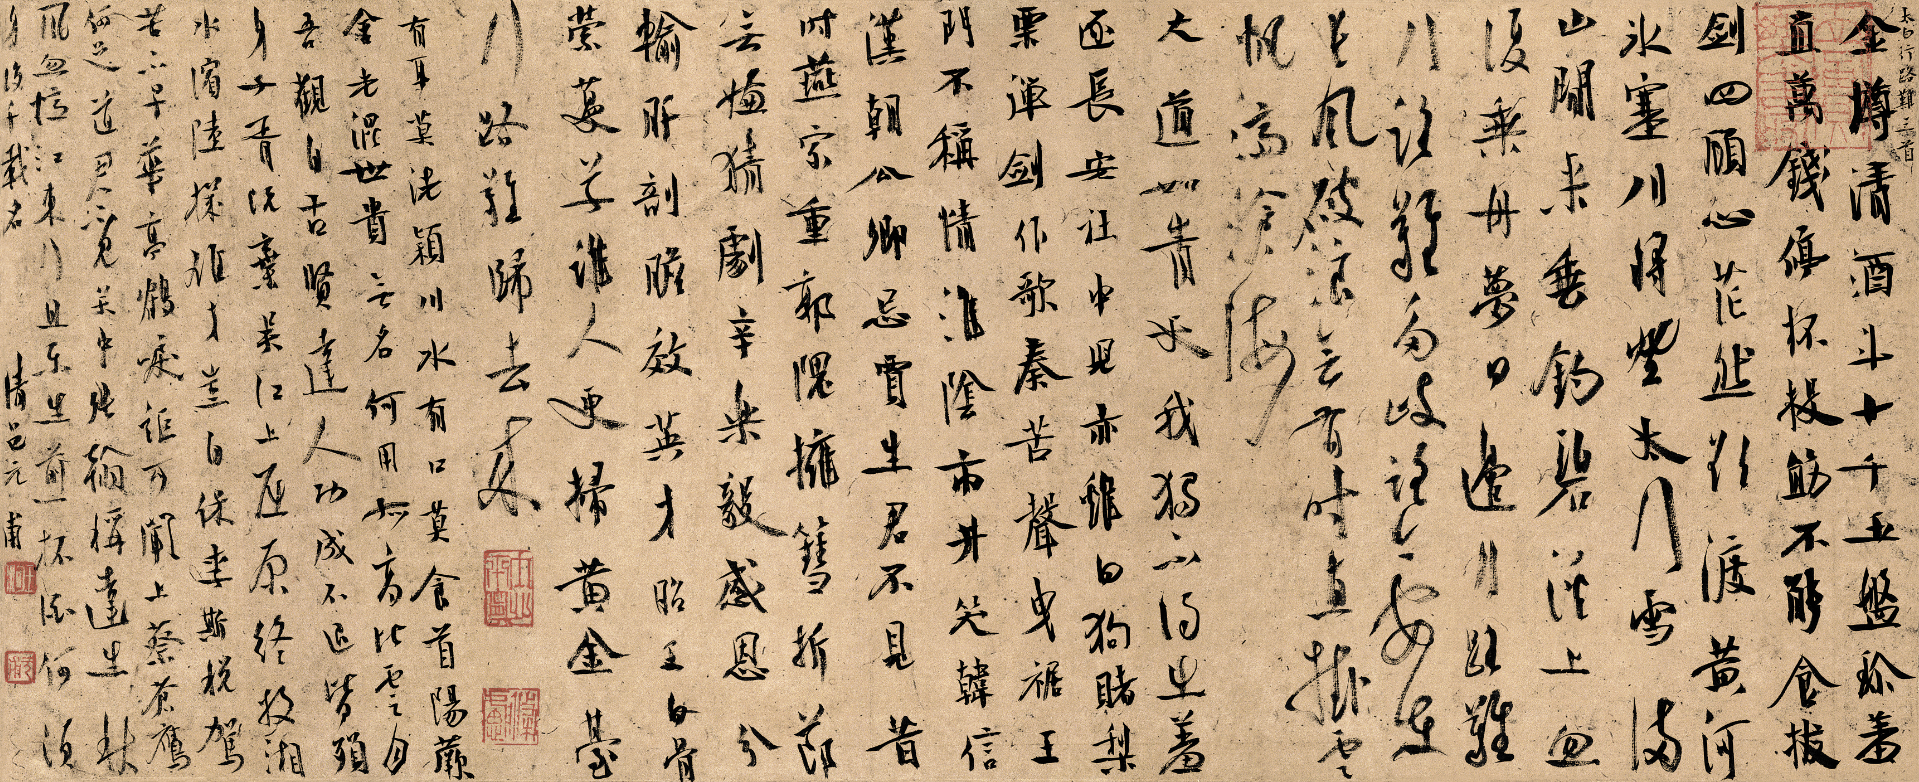 太白行路難三首
金樽清酒斗十千玉盤珍羞
直萬錢停杯投筯不能食拔
劍四顧心茫然欲渡黃河
冰塞川將登太行雪滿
山閒來垂釣碧溪上忽
復乘舟夢日邊行路難
行路難多岐路今安在
長風破浪會有時直挂雲
帆濟滄海
大道如青天我獨不得出羞
逐長安社中兒赤雞白狗賭梨
栗彈劍作歌奏苦聲曳裾王
門不稱情淮陰市井笑韓信
漢朝公卿忌賈生君不見昔
時燕家重郭隗擁篲折節
無嫌猜劇辛樂毅感恩分
輸肝剖膽效英才昭王白骨
縈蔓草誰人更掃黃金臺
行路難歸去來
有耳莫洗潁川水有口莫食首陽蕨
含光混世貴無名何用孤高比雲月
吾觀自古賢達人功成不退皆殞
身子胥既棄吳江上屈原終投湘
水濱陸機雄才豈自保李斯稅駕
苦不早華亭鶴唳詎可聞上蔡蒼鷹
何足道君不見吳中張翰稱達生秋
風忽憶江東行且樂生前一杯酒何須
身後千載名 清呂元甫